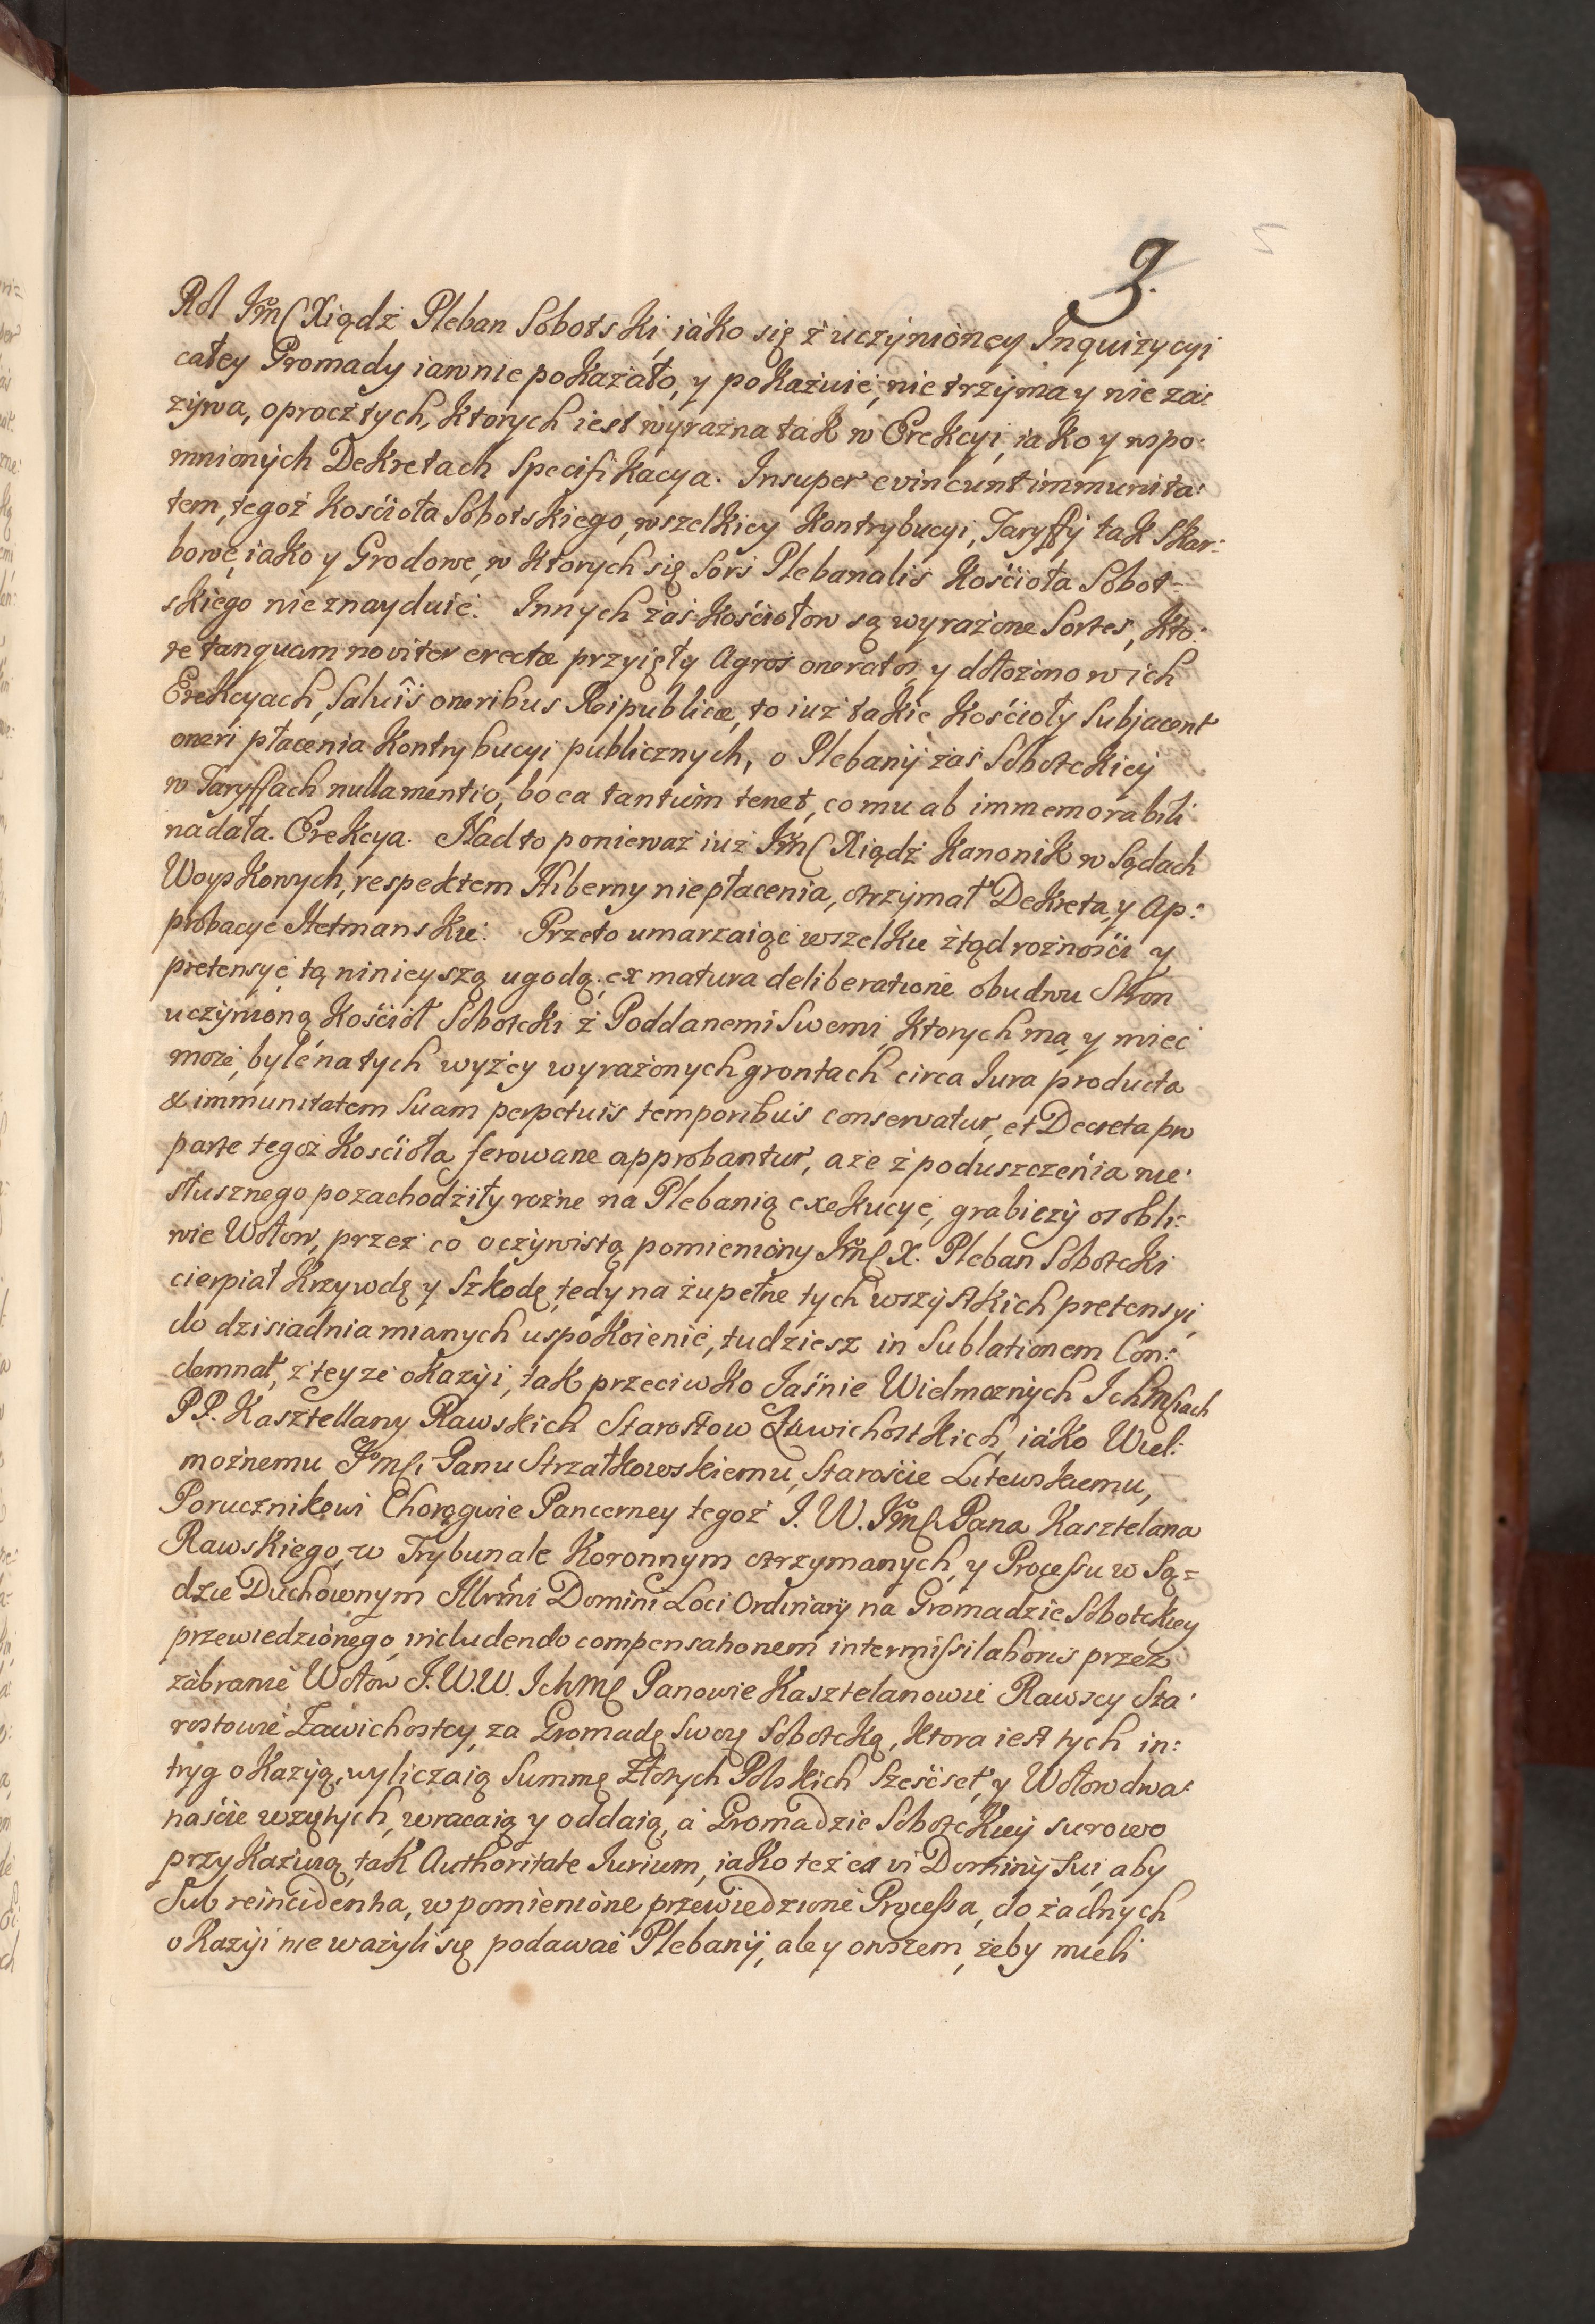 9.
Rol Jm̃ć Xiądz Pleban Sobotski, iako się z uczynioney Inquizycyi
całey Gromady iawnie pokazało, y pokazuie, nie trzyma y nie za:
zywa, oprocz tych, ktorych iest wyrazna tak w Erekcyi, iako y wspo:
mnionych Dekretach Specifikacya. Insuper evincunt immunita:
tem, tegoż Kościoła Sobotskiego, wszelkiey Kontrybucyi, Taryffy tak Skar:
bowe, iako y Grodowe, w ktorych się Sors Plebanalis Kościoła Sobot=
skiego nie znayduie. Innych zaś Kościołow są wyrażone Sortes, kto:
re tanquam noviter erectæ przyięły Agros oneratos, y dołożono w ich
Erekcyach, Salvis oneribus Reipublicæ, to iuż takie Kościoły Subjacent
oneri płacenia Kontrybucyi publicznych, o Plebanij zaś Sobotckiey
w Taryffach nulla mentio, bo ea tantum tenet, co mu ab immemorabili
nadała Erekcya. Nadto ponieważ iuż Jm̃ć Xiądz Kanonik w Sądach
Woyskowych, respektem Hiberny niepłacenia, otrzymał Dekreta, y Ap:
probacye Hetmanskie. Przeto umarzaiąc wszelkie ztąd rożności y
pretensye, tą ninieyszą ugodą, ex matura deliberatione obudwu Stron
uczynioną Kościoł Sobotcki z Poddanemi Swemi, ktorych ma, y miec
może, byle na tych wyżey wyrażonych grontach circa Jura producta
& immunitatem Suam perpetuis temporibus conservatur, et Decreta pro
parte tegoż Kościoła ferowane approbantur, a że z poduszczenia nie:
słusznego pozachodziły rożne na Plebanią exekucye, grabieży osobli:
wie Wołow, przez co oczywistą pomieniony Jm̃ć X. Pleban Sobotcki
cierpiał Krzywdę y Szkodę, tedy na zupełne tych wszystkich pretensyi,
do dzisiadnia mianych uspokoienie, tudziesz in Sublationem Con:
demnat, z teyze okazyi, tak przeciwko Jaśnie Wielmoznych Ichm̃ściach
P P. Kasztellany Rawskich Starostow Zawichostskich, iako Wiel:
możnemu Jm̃ści Panu Strzałkowskiemu, Staroście Litewskiemu,
Porucznikowi Chorągwie Pancerney tegoż J. W. Jm̃ści Pana Kasztelana
Rawskiego, w Trybunale Koronnym otrzymanych, y Processu w Są=
dzie Duchownym Illrm̃i Domini Loci Ordinarij na Gromadzie Sobotckiey
przewiedzionego, includendo compensationem intermissi laboris przez
zabranie Wołow J. W. W. Ichmść Panowie Kasztelanowie Rawscy Sta:
rostowie Zawichostcy, za Gromadę Swoię Sobotcką, ktora iest tych in:
tryg okazyą, wyliczaią Summę Złotych Polskich Sześćset, y Wołow dwa:
naście wziętych, wracaią y oddaią, a Gromadzie Sobotckiey surowo
przykazuią, tak Authoritate Jurium, iako też ex vi Dominij Sui, aby
Sub reincidentia, w pomienione przewiedzione Processa, do żadnych
okazyi nie ważyli się podawać Plebanij, ale y owszem, żeby mieli